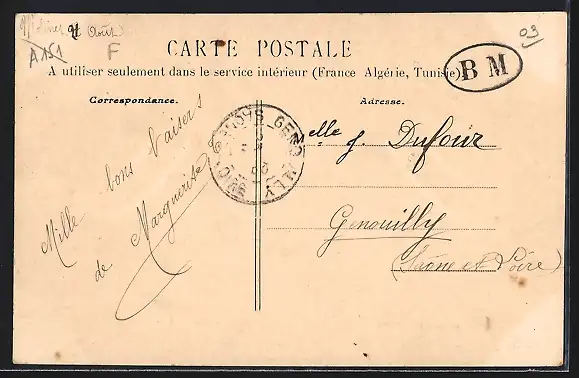 A151
F
03
CARTE POSTALE
A utiliser seulement dans le service intérieur (France Algérie, Tunisie)
B M
Correspondance.
Adresse.
Mille bons baisers
de Marguerite
elle J. Dufour
Genouilly
(Saône et Loire)
GENOUILLY
LOIRE